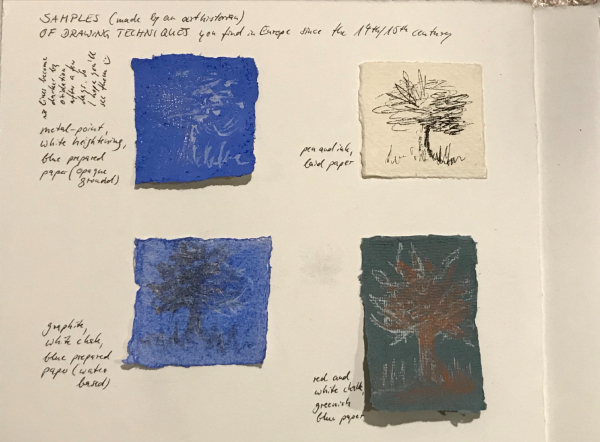 SAMPLES (made by an art historian)
OF DRAWING TECHNIQUES you find in Europe since the 14th/15th century
lines become
darker by
oxidation
after a few
days. So
I hope you'll
see them
metal-point,
white heightening,
blue prepared
paper (opaque
grounded)
pen and ink,
laid paper
graphite,
white chalk,
blue prepared
paper (water
based)
red and
white chalk,
greenish
blue paper